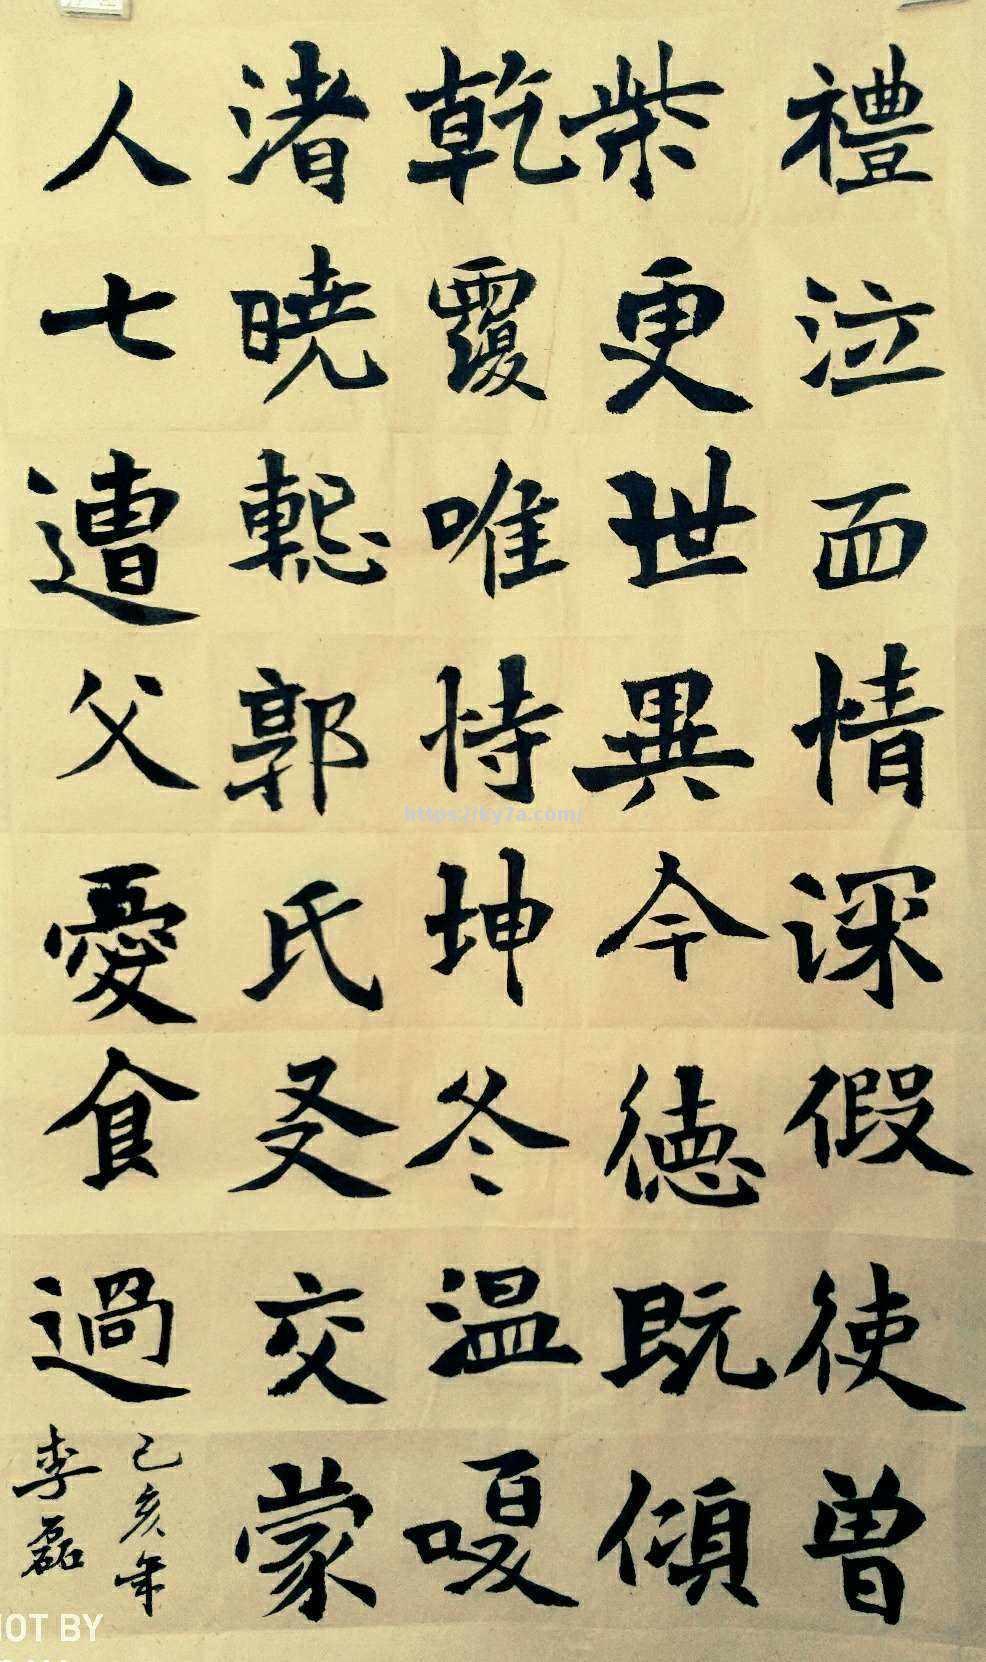 禮泣面情深假使曾
柴更世異今德既傾
乾覆唯恃坤冬温嗄
渚曉郭氏交蒙
人七遭父憂食過
己亥年
李磊
https://ky7a.com/
IOT BY